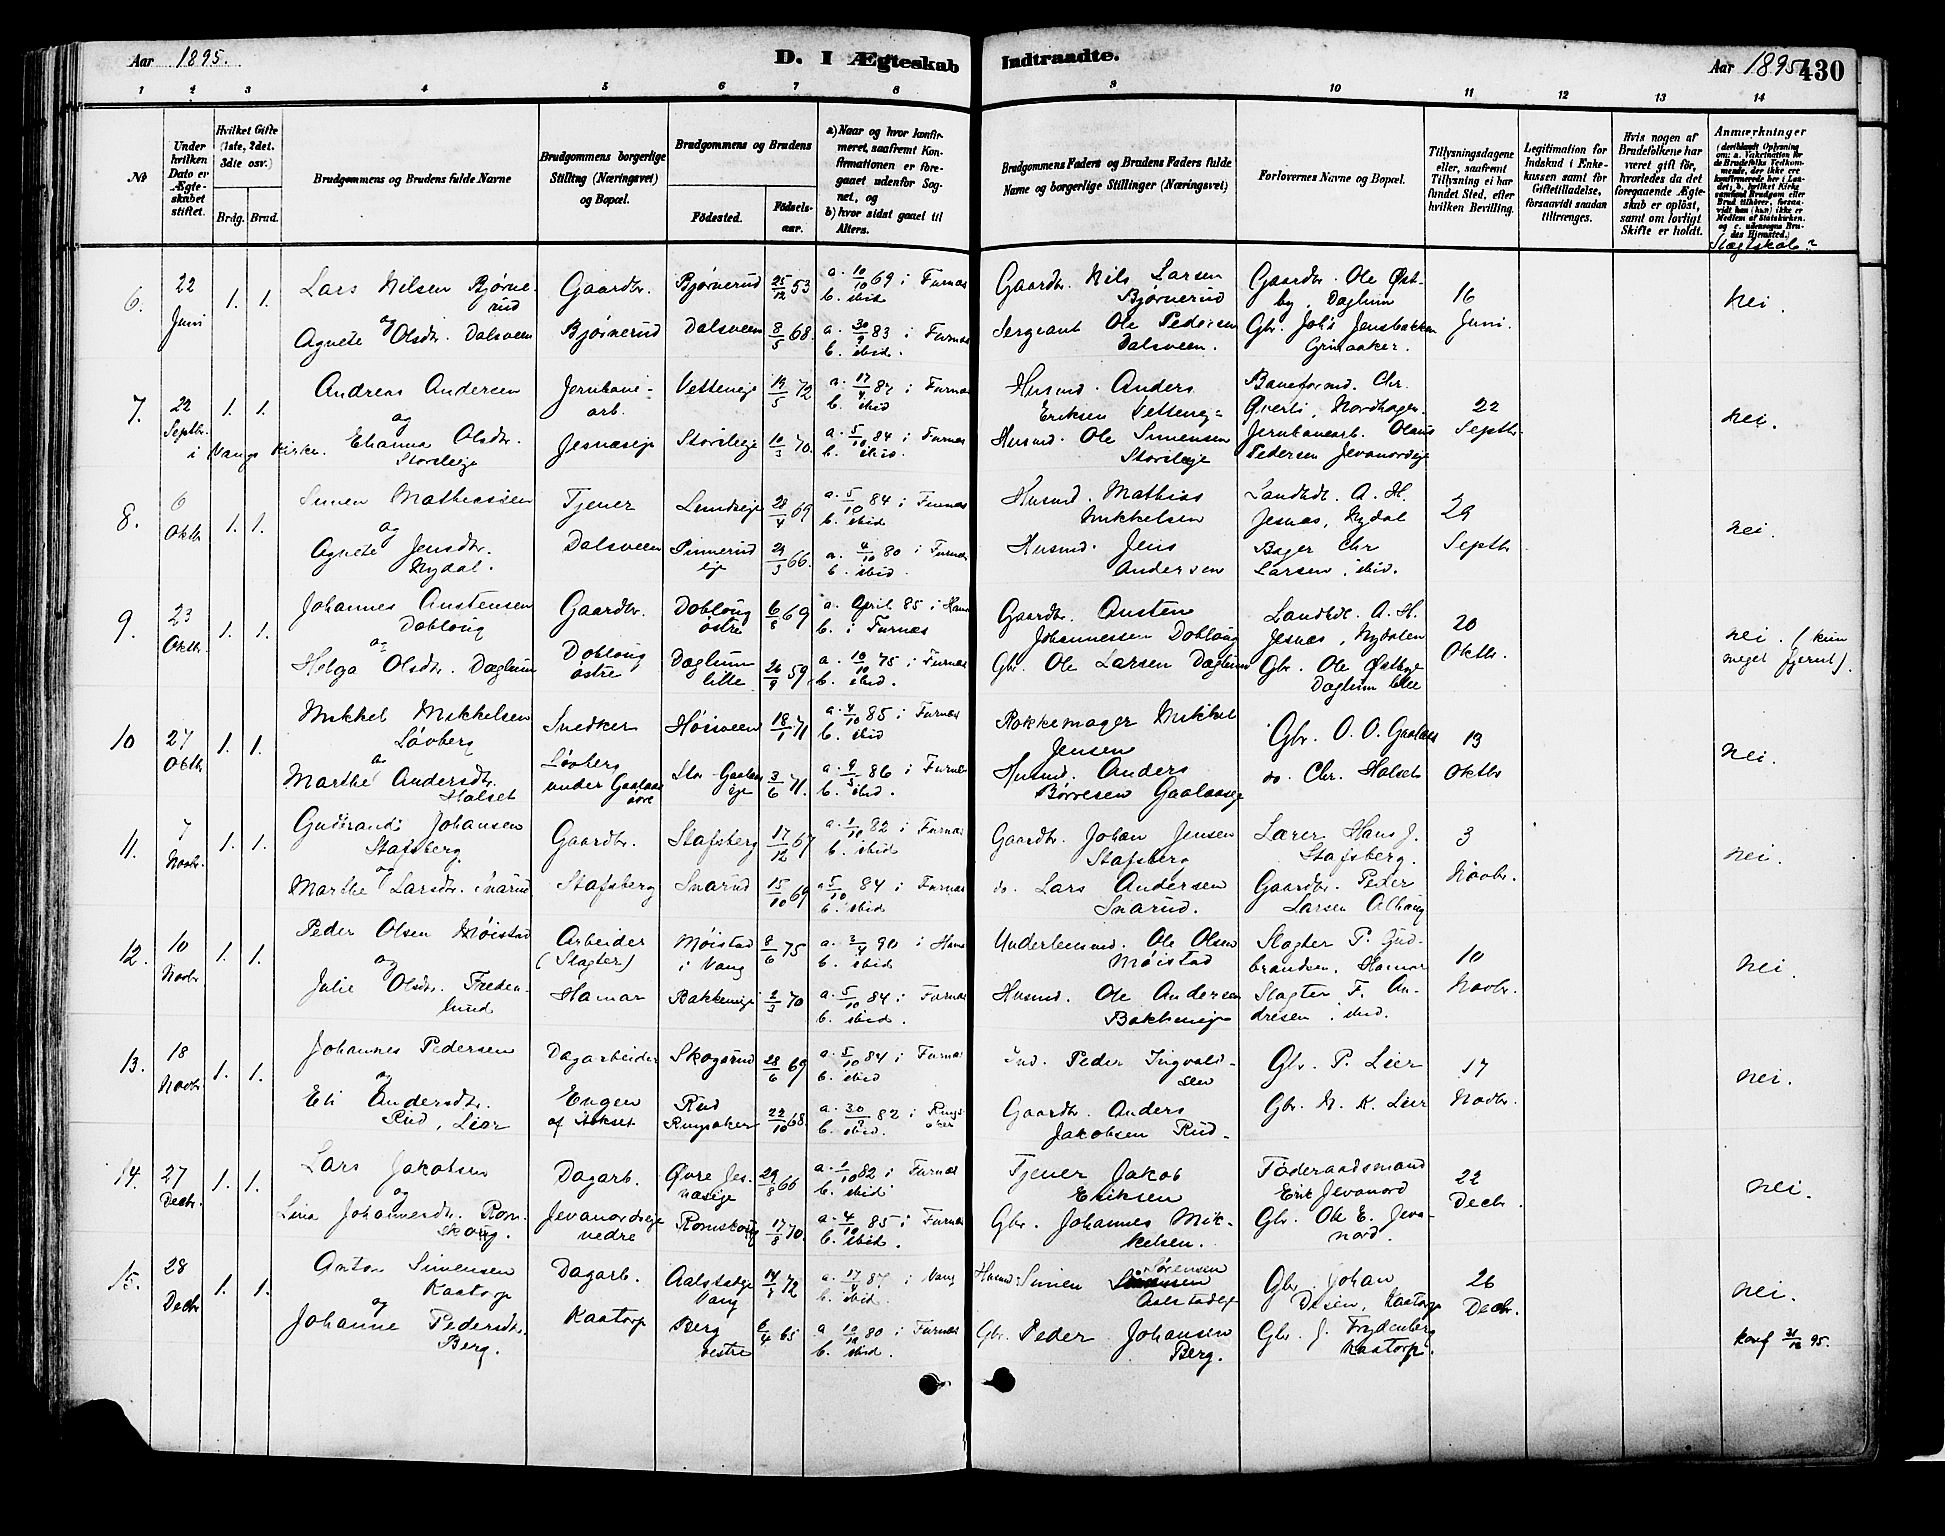 Aar 1895. D. I Ægteskab Indtraadte. Aar 1895. 430
1 2 3 4 5 6 7 8 9 10 11 12 13 14
No
Under hvilken Dato er Ægteskabet stiftet.
Hvilket Gifte (1ste, 2det. 3die osv.)
Brdg. Brud.
Brudgommens og Brudens fulde Navne
Brudgommens borgerlige Stilling (Næringsvei) og Bopæl.
Brudgommens og Brudens
Födested. Födselsaar.
a) Naar og hvor konfirmeret, saafremt Konfirmationen er foregaaet udenfor Sognet, og
b) hvor sidst gaaet til Alters.
Brudgommens Faders og Brudens Faders fulde Navne og borgerlige Stillinger (Næringsvei)
Forlovernes Navne og Bopæl.
Tillysningsdagene eller, saafremt Tillysning ei har fundet Sted, efter hvilken Bevilling.
Legitimation for Indskud i Enkekassen samt for Giftetilladelse, forsaavidt saadan tiltrænges.
Hvis nogen af Brudefolkene har været gift för, hvorledes da det foregaaende Ægteskab er oplöst, samt om lovligt Skifte er holdt.
Anmærkninger
Slægtskab?
6. 22 Juni 1. 1.
Lars Nilsen Bjørnerud Gaardbr. Bjørnerud 25/12 53 a. 10/10 69 i Furnæs b. ibid
Gaardbr. Nils Larsen Bjørnerud Gaardbr. Ole Østby, Daglum 16 Juni. Nei.
og
Agnete Olsdtr. Dalsveen Bjørnerud Dalsveen 8/5 68. a. 30/9 83 i Furnæs b. ibid.
Sergeant Ole Pedersen Dalsveen. Gbr. Joh's Jensbakken Grimaaker.
7. 22 Septbr. i Vangs Kirke. 1. 1.
Andreas Andersen Jernbanearb. Vetteneje 19/5 72 a. 17/4 87 i Furnæs b. ibid
Husmd. Anders Eriksen Vetteneje Baneformd. Chr. Qverli, Nordhagen 22 Septbr. Nei.
og
Elianna Olsdtr. Storsleeje Jesnæseje Storsleeje 10/3 70. a. 5/10 84 i Furnæs b. ibid.
Husmd. Ole Simensen Storsleeje Jernbanearb. Olaus Pedersen Jevanordeje
8. 6 Oktbr 1. 1.
Simen Mathiassen Tjener Lundseje 28/4 69 a. 5/10 84 i Furnæs b. ibid
Husmd. Mathias Mikkelsen Landhdl. A. H. Jesnæs, Nydal 29 Septbr nei.
og
Agnete Jensdtr. Nydal. Dalsveen Finnerudeje 29/3 66. a. 4/10 80 i Furnæs b. ibid.
Husmd. Jens Andersen Bager Chr Larsen, ibid.
9. 23 Oktbr. 1. 1.
Johannes Austensen Dobloug Gaardbr. Dobloug østre 6/8 69 a. April 85 i Hamar b. i Furnæs
Gaardbr. Austen Johannessen Dobloug Landhdl. A. H. Jesnæs, Nydalen 20 Oktbr. nei. (kun meget fjernt).
og
Helga Olsdtr. Daglum Dobloug østre Daglum lille 26/9 59 a. 10/10 75 i Furnæs b. ibid.
Gbr. Ole Larsen Daglum Gbr. Ole Østbye Daglum lille
10 27 Oktbr 1. 1.
Mikkel Mikkelsen Løvberg Snedker Høisveen 18/1 71 a. 4/10 85 i Furnæs b. ibid
Rokkemager Mikkel Jensen Gbr. O. O. Gaalaas 13 Oktbr nei.
og
Marthe Andersdtr. Halset Løvberg under Gaalaas øvre Stor-Gaalaaseje 3/6 71. a. 9/5 86 i Furnæs b. ibid.
Husmd. Anders Børresen Gaalaaseje do. Chr. Halset
11. 7 Novbr. 1. 1.
Gudbrand Johansen Stafsberg Gaardbr. Stafsberg 17/12 67 a. 1/10 82 i Furnæs b. ibid.
Gaardbr. Johan Jensen Stafsberg Lærer Hans J. Stafsberg. 3 Novbr. nei.
og
Marthe Larsdtr. Snarud Stafsberg Snarud 15/10 69 a. 5/10 84 i Furnæs b. ibid
do. Lars Andersen Snarud. Gaardbr. Peder Larsen Alhaug
12. 10 Novbr 1. 1.
Peder Olsen Møistad Arbeider (Slagter) Møistad i Vang 8/6 75 a. 3/4 90 i Hamar b. ibid
Underlensmd. Ole Olsen Møistad Slagter P. Gudbrandsen, Hamar 10 Novbr. nei.
og
Julie Olsdtr. Fredenlund Hamar Bakkeneje 2/3 70 a. 5/10 84 i Furnæs b. ibid.
Husmd. Ole Andersen Bakkeneje Slagter F. Andresen, ibid.
13. 18 Novbr 1. 1.
Johannes Pedersen Dagarbeider Skogsrud 28/6 69 a. 5/10 84 i Furnæs b. ibid
Ind. Peder Ingvaldsen Gbr. P. Lier 17 Novbr. nei.
og
Eli Andersdtr. Rud, Lier Engen af Askset Rud Ringsaker 22/10 68. a. 30/9 82 i Ringsaker b. ibid.
Gaardbr. Anders Jakobsen Rud. Gbr. N. K. Lier
14. 27 Decbr. 1. 1.
Lars Jakobsen Dagarb. Øvre Jesnæseje 29/8 66 a. 1/10 82 i Furnæs b. ibid
Tjener Jakob Eriksen Føderaadsmand Erik Jevanord 22 Decbr. nei.
og
Lina Johannesdtr. Romskoug. Jevanordseje nedre Romskoug 17/8 70. a. 4/10 85 i Furnæs b. ibid.
Gbr. Johannes Mikkelsen. Gbr. Ole E. Jevanord.
15. 28 Decbr 1. 1.
Anton Simensen Kaatorp Dagarb. Aalstadeje Vang 14/3 72 a. 17/4 87 i Vang b. ibid.
Husmd. Simen Sørensen Aalstadeje Gbr. Johan Desen, Kaatorp 26 Decbr. nei.
og
Johanne Pedersdtr. Berg. Kaatorp Berg vestre 6/4 65 a 10/10 80 i Furnæs b. ibid.
Gbr. Peder Johansen Berg. Gbr. J. Frydenberg Kaatorp.
konf 31/12 95.